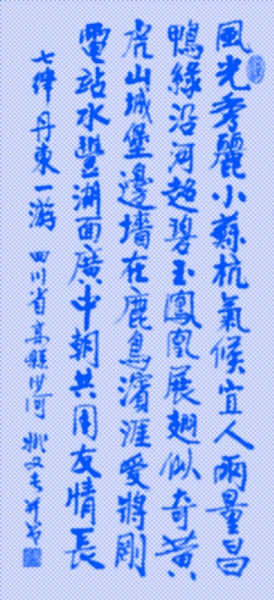 風光秀麗小蘇杭氣候宜人雨量昌
鴨綠沿河超碧玉鳳凰展翅似奇黃
虎山城堡邊墻在鹿島濱涯愛將剛
電站水豐湖面廣中朝共用友情長
七律丹東一游 四川省高縣沙河 姚